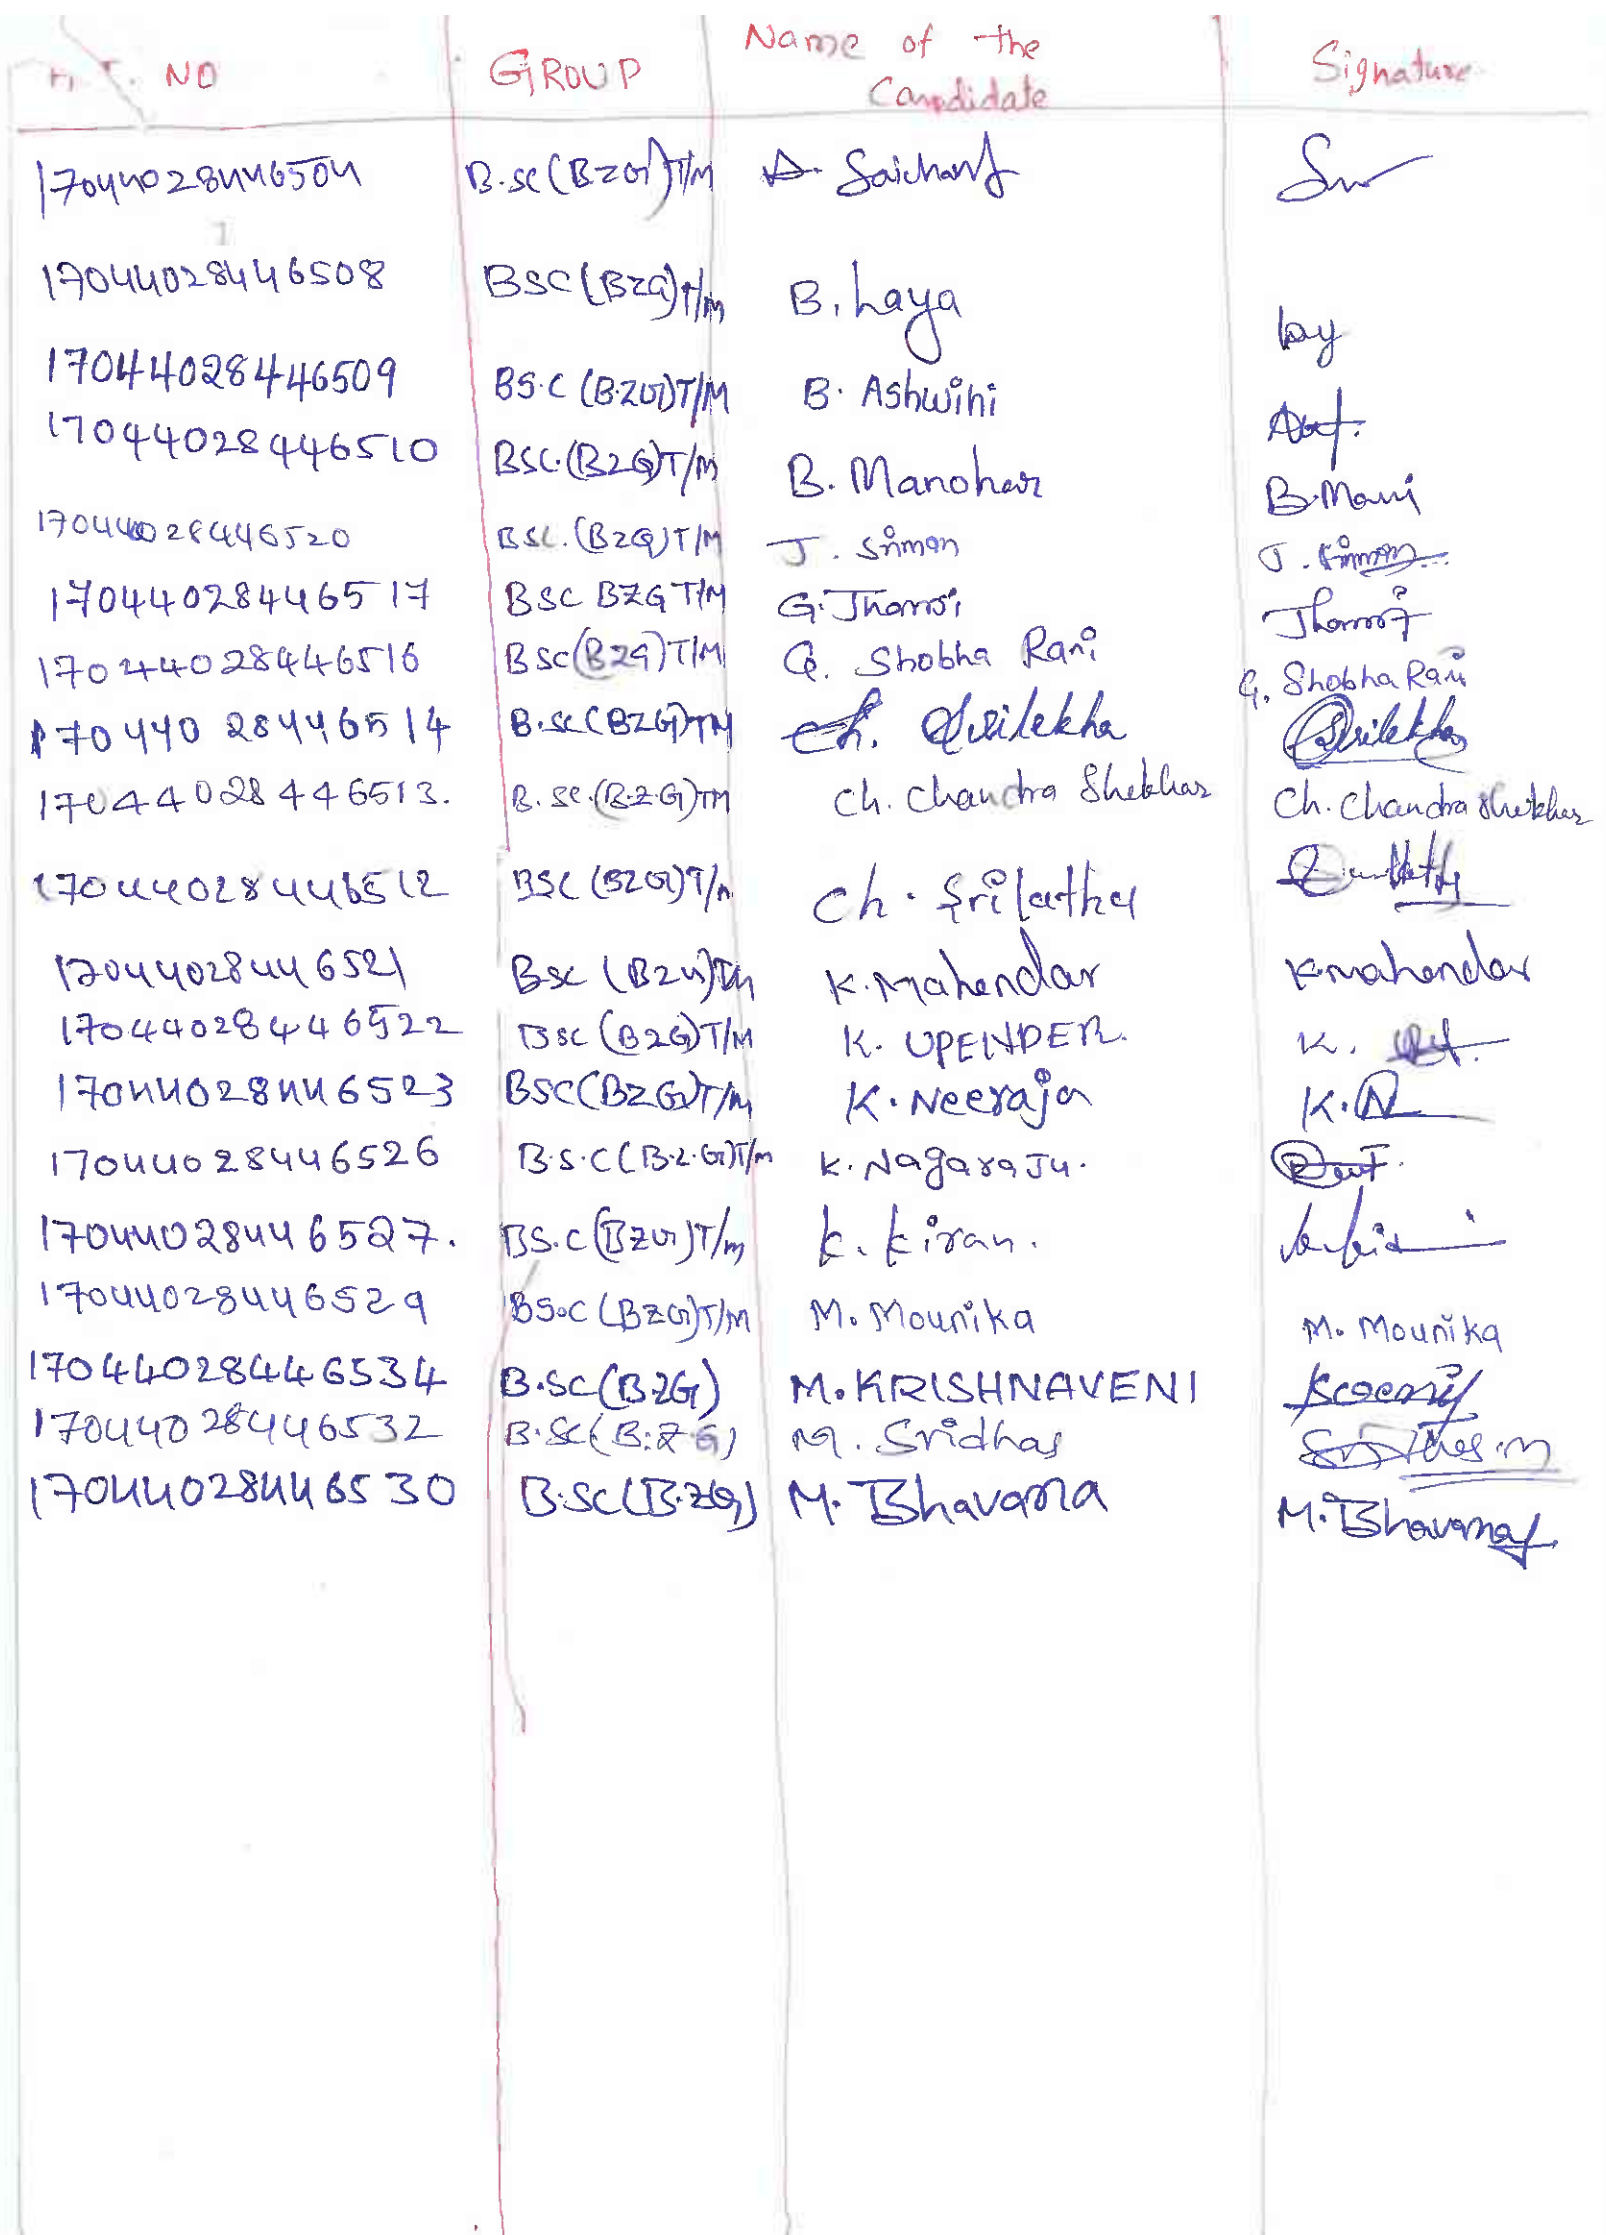 H.T. NO GROUP Name of the Candidate Signature
17044028446504 B.SC(BZG)T/M A. Saicharan
17044028446508 BSC(BZG)T/M B. Laya
17044028446509 BS.C (B.ZG)T/M B. Ashwini
17044028446510 BSC.(BZG)T/M B. Manohar B.Mani
17044028446520 BSC.(BZG)T/M J. Simon J. Simon
17044028446517 BSC BZG T/M G. Jhansi Jhansi
17044028446516 BSC(BZG)T/M G. Shobha Rani G. Shobha Rani
17044028446514 B.SC(BZG)TM Ch. Srilekha Srilekha
17044028446513. B.SC.(B.Z.G)TM Ch. Chandra Shekhar Ch. Chandra Shekhar
17044028446512 BSC (BZG)T/M Ch. Srilatha
17044028446521 BSC (BZG)TM K.Mahendar K.mahendar
17044028446522 BSC (BZG)T/M K. UPENDER. K.
17044028446523 BSC(BZG)T/M K. Neeraja K.N
17044028446526 B.S.C(B.Z.G)T/M K. NagaraJu.
17044028446527. BS.C(BZG)T/M K. Kiran.
17044028446529 BS.C(BZG)T/M M. Mounika M. Mounika
17044028446534 B.SC(BZG) M. KRISHNAVENI
17044028446532 B.SC(B.Z.G) M. Sridhar Sridhar.m
17044028446530 B.SC(B.ZG) M. Bhavana M. Bhavana